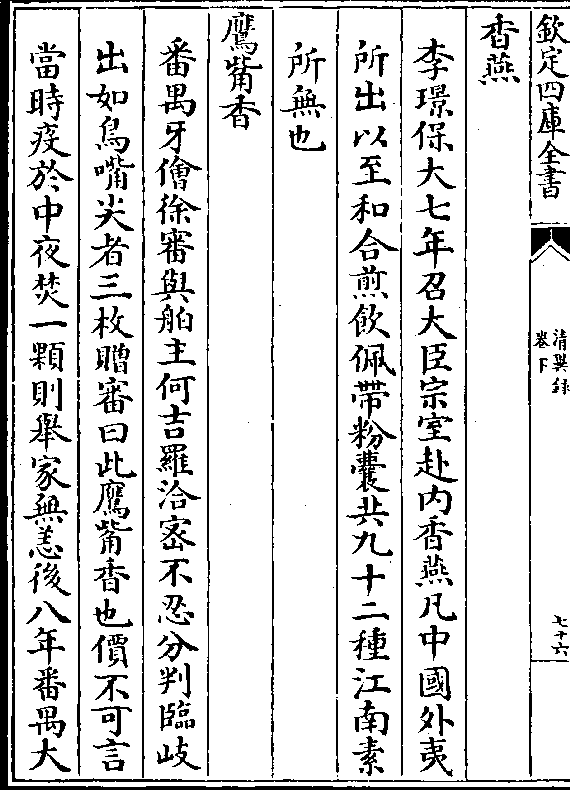 欽定四庫全書
清異錄
卷下
七十六
香燕
李璟保大七年召大臣宗室赴内香燕凡中國外夷
所出以至和合煎飲佩帶粉囊共九十二種江南素
所無也
鷹觜香
番禺牙儈徐審與舶主何吉羅洽宻不忍分判臨岐
出如鳥嘴尖者三枚贈審曰此鷹觜香也價不可言
當時疫於中夜焚一顆則舉家無恙後八年番禺大